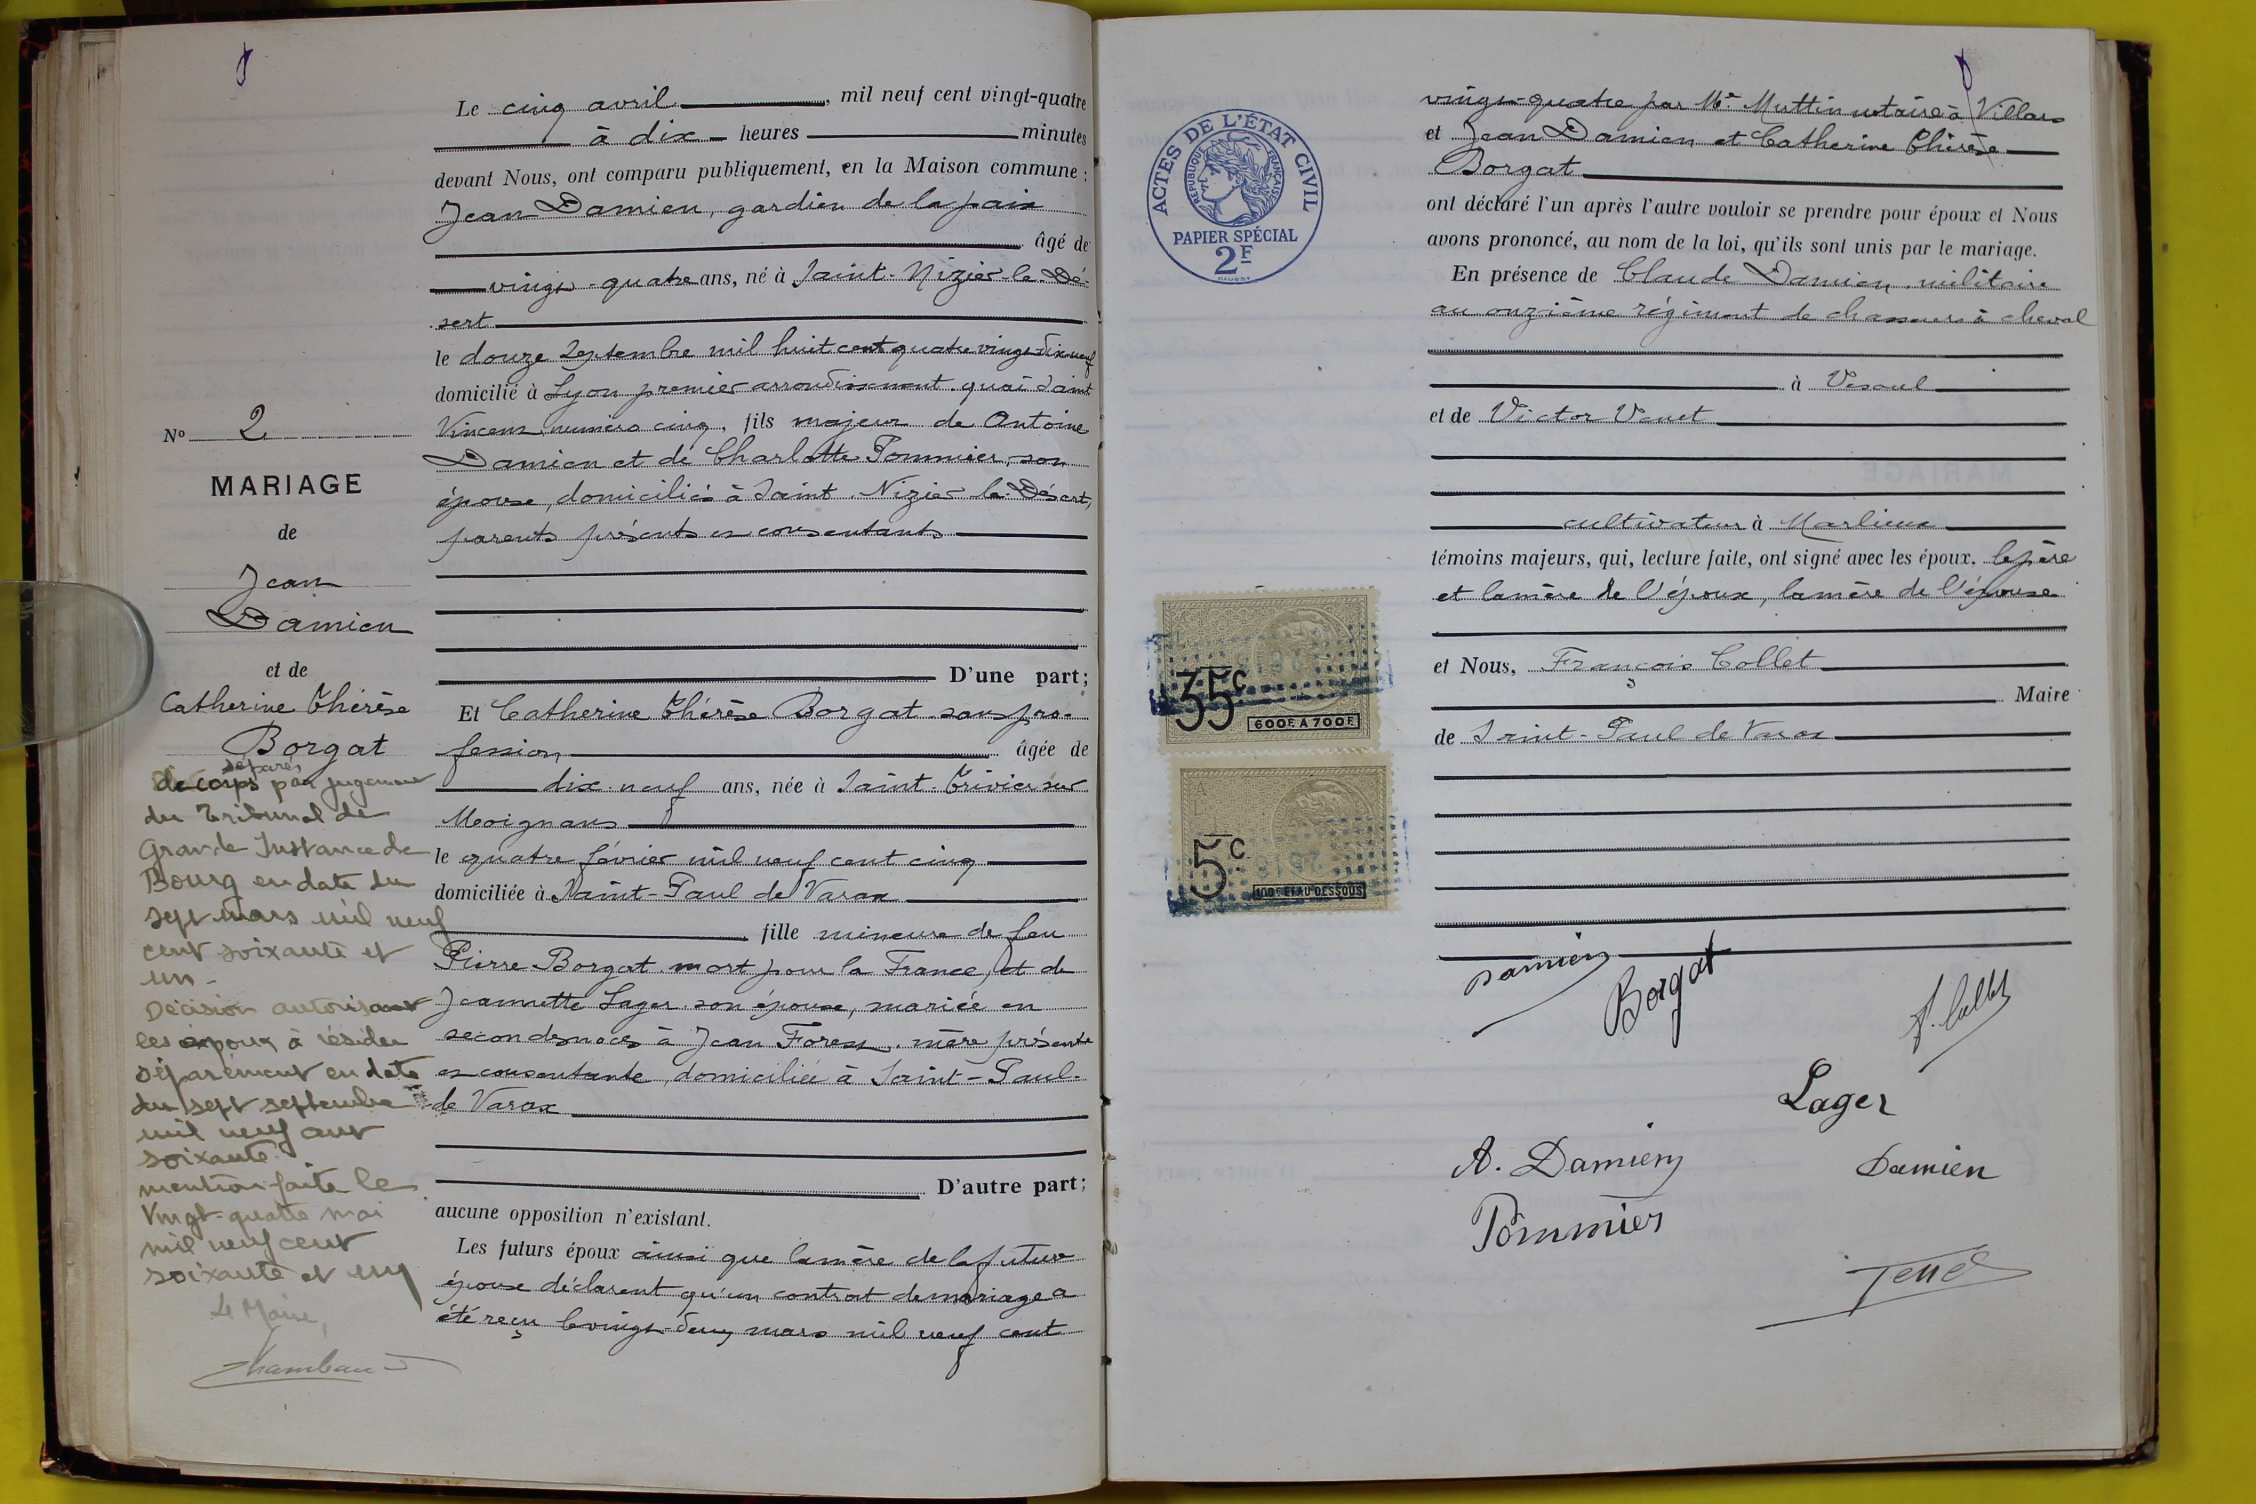 Le cinq avril, mil neuf cent vingt-quatre
à dix heures minutes
devant Nous, ont comparu publiquement, en la Maison commune :
Jean Damien, gardien de la paix
âgé de
vingt-quatre ans, né à Saint-Nizier-le-Dé-
sert
le douze Septembre mil huit cent quatre vingt dix neuf
domicilié à Lyon premier arrondissement quai Saint
Vincent numéro cinq, fils majeur de Antoine
Damien et de Charlotte Pommier, son
épouse, domiciliés à Saint Nizier le Désert,
parents présents et consentants
D'une part;
Et Catherine Thérèse Borgat sans pro-
fession âgée de
dix-neuf ans, née à Saint-Trivier sur
Moignans
le quatre février mil neuf cent cinq
domiciliée à Saint-Paul de Varax
fille mineure de feu
Pierre Borgat mort pour la France, et de
Jeannette Lager son épouse, mariée en
secondes noces à Jean Forest, mère présente
et consentante, domiciliée à Saint-Paul-
de Varax
D'autre part;
aucune opposition n'existant.
Les futurs époux ainsi que la mère de la future
épouse déclarent qu'un contrat de mariage a
été reçu le vingt-deux mars mil neuf cent
Nº 2
MARIAGE
de
Jean
Damien
et de
Catherine Thérèse
Borgat
séparés
de corps par jugement
du Tribunal de
Grande Instance de
Bourg en date du
sept mars mil neuf
cent soixante et
un -
Décision autorisant
les époux à résider
séparément en date
du sept septembre
mil neuf cent
soixante.
mention faite le
Vingt-quatre mai
mil neuf cent
soixante et un
Le Maire,
ACTES DE L'ÉTAT CIVIL
RÉPUBLIQUE FRANÇAISE
PAPIER SPÉCIAL
2F
35c
600F A 700F
5c
100F ET AU DESSOUS
vingt-quatre par Me Muttin notaire à Villars
et Jean Damien et Catherine Thérèse
Borgat
ont déclaré l'un après l'autre vouloir se prendre pour époux et Nous
avons prononcé, au nom de la loi, qu'ils sont unis par le mariage.
En présence de Claude Damien, militaire
au onzième régiment de chasseurs à cheval
à Vesoul
et de Victor Venet
cultivateur à Marlieux
témoins majeurs, qui, lecture faite, ont signé avec les époux, le père
et la mère de l'époux, la mère de l'épouse
et Nous, François Collet
Maire
de Saint-Paul de Varax
Damien
Borgat
F. Collet
Lager
A. Damien
Damien
Pommier